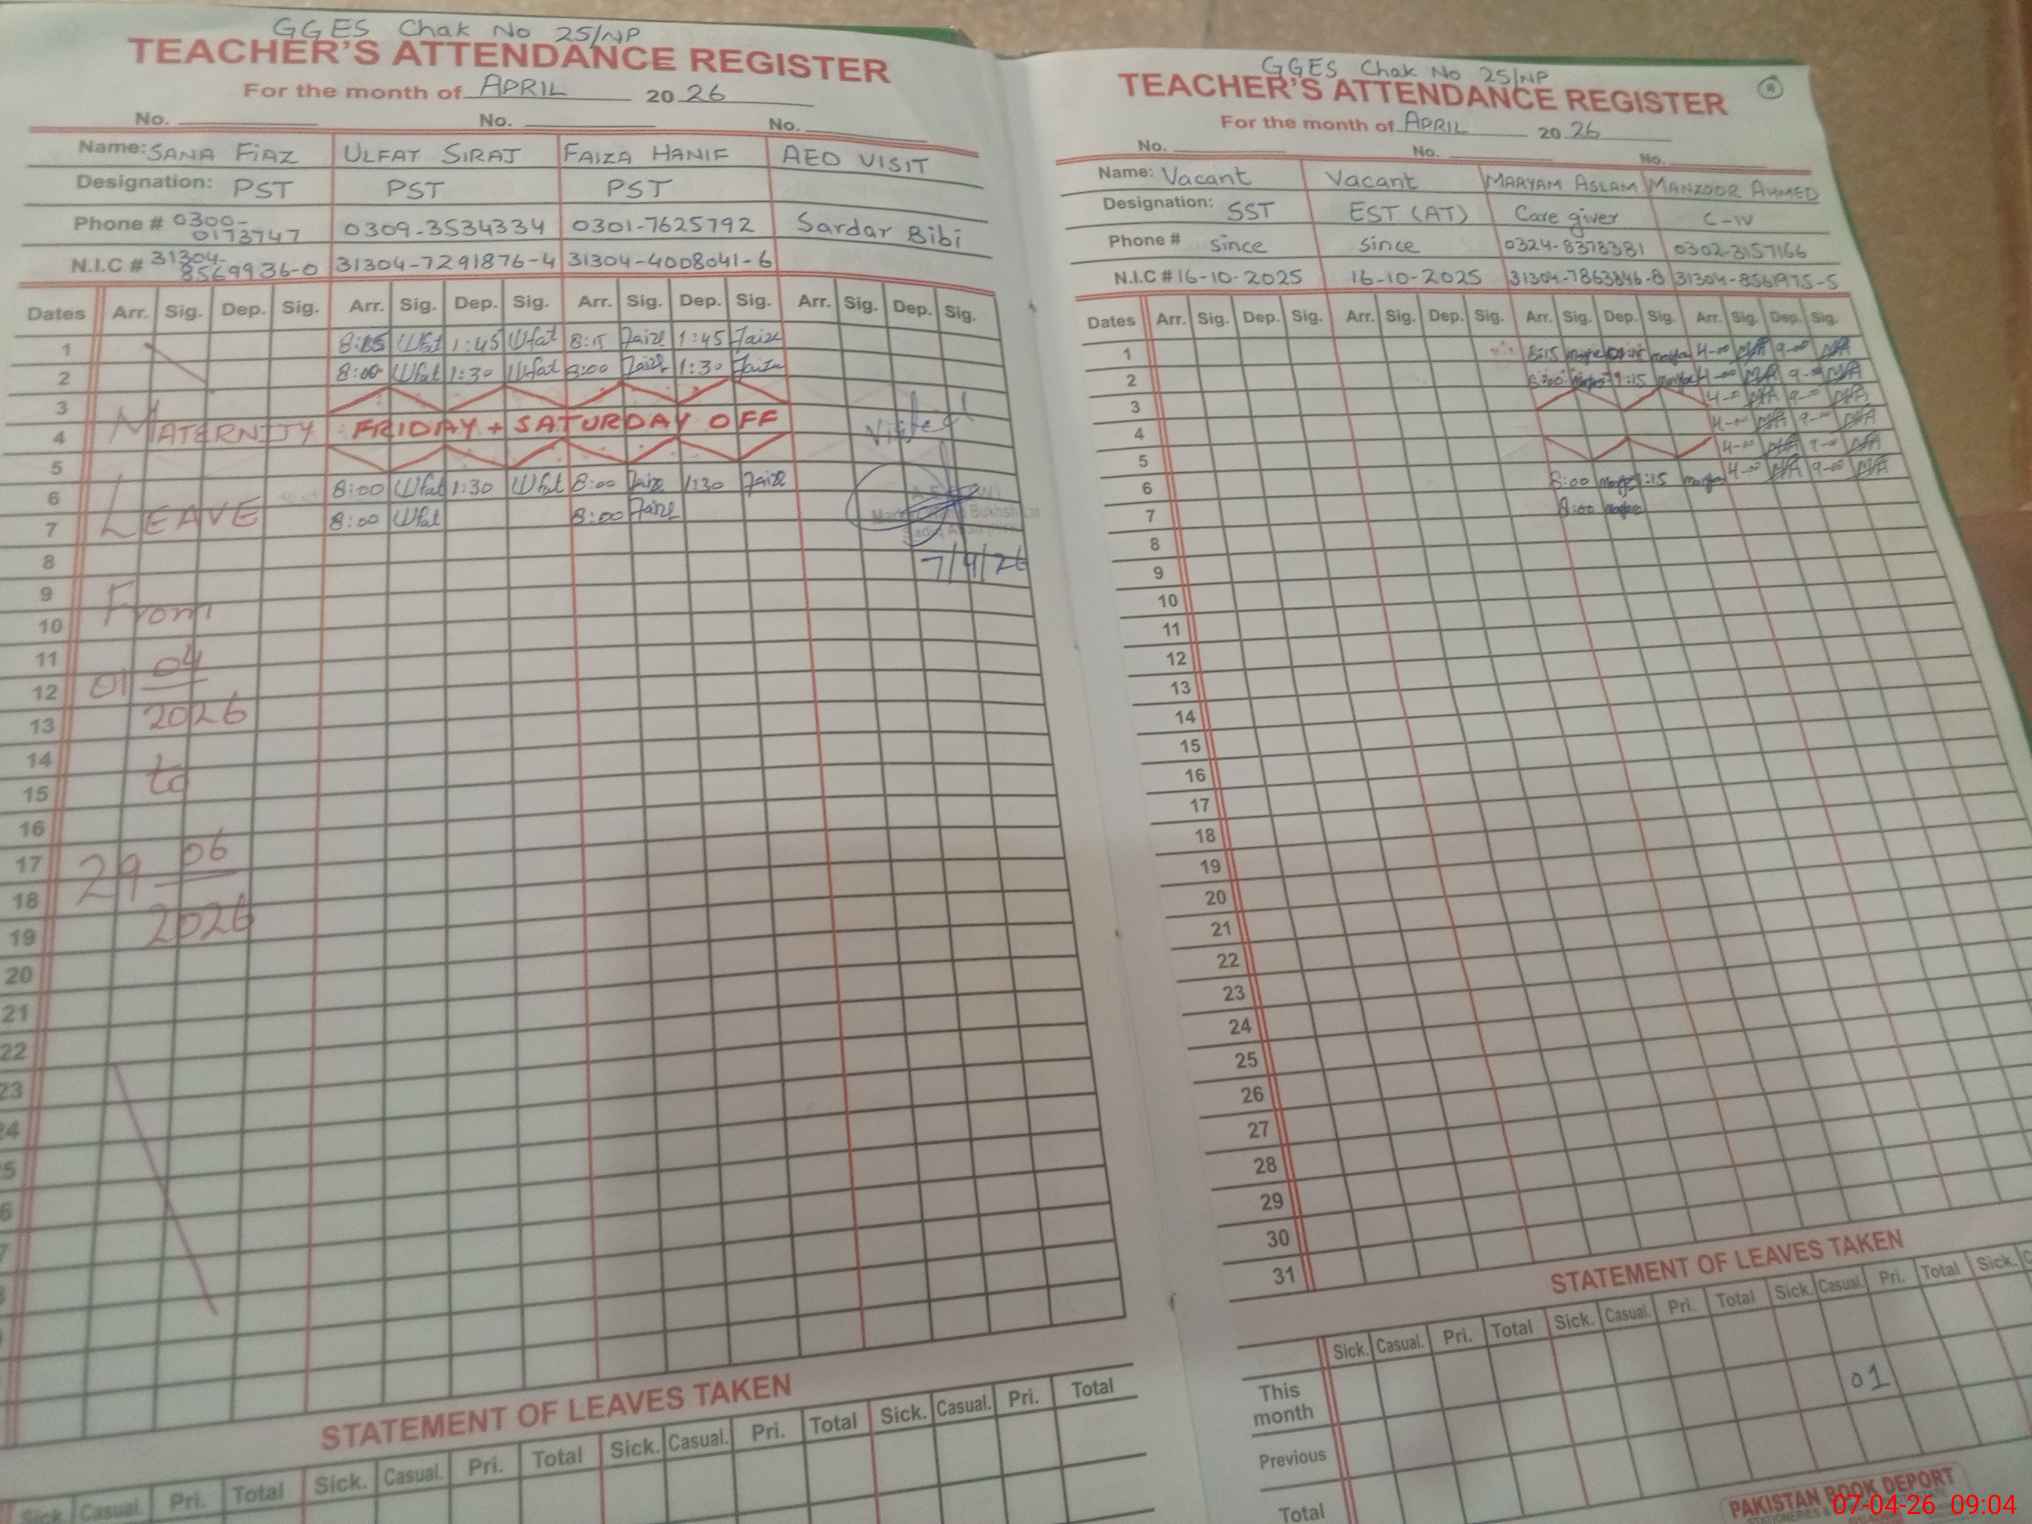 GGES Chak No 25/NP
TEACHER'S ATTENDANCE REGISTER
For the month of APRIL 2026
No. No. No.
Name: SANA FiAZ ULFAT SIRAJ FAIZA HANIF AEO VISIT
Designation: PST PST PST
Phone # 0300-0173747 0309-3534334 0301-7625792 Sardar Bibi
N.I.C # 31304-8569936-0 31304-7291876-4 31304-4008041-6
Dates Arr. Sig. Dep. Sig. Arr. Sig. Dep. Sig. Arr. Sig. Dep. Sig. Arr. Sig. Dep. Sig.
1 8:15 Ulfat 1:45 Ulfat 8:15 Faiza 1:45 Faiza
2 8:00 Ulfat 1:30 Ulfat 8:00 Faiza 1:30 Faiza
3
4 MATERNITY FRIDAY + SATURDAY OFF Visited
5
6 8:00 Ulfat 1:30 Ulfat 8:00 Faiza 1:30 Faiza
7 LEAVE 8:00 Ulfat 8:00 Faiza
8 7/4/26
9
10 From
11
12 01 04
13 2026
14
15 to
16
17 29 06
18
19 2026
20
21
22
23
STATEMENT OF LEAVES TAKEN
Sick. Casual. Pri. Total Sick. Casual. Pri. Total Sick. Casual. Pri. Total Sick. Casual. Pri. Total
GGES Chak No 25/NP
TEACHER'S ATTENDANCE REGISTER
For the month of APRIL 2026
No. No. No.
Name: Vacant Vacant MARYAM ASLAM MANZOOR AHMED
Designation: SST EST (AT) Care giver C-IV
Phone # since since 0324-8378381 0302-3157166
N.I.C # 16-10-2025 16-10-2025 31304-7863846-8 31304-8561975-5
Dates Arr. Sig. Dep. Sig. Arr. Sig. Dep. Sig. Arr. Sig. Dep. Sig. Arr. Sig. Dep. Sig.
1 8:15 4-00 MA 9-00 MA
2 8:00 1:15 4-00 MA 9-00 MA
3 4-00 MA 9-00 MA
4 4-00 MA 9-00 MA
5 4-00 MA 9-00 MA
6 8:00 1:15 4-00 MA 9-00 MA
7 8:00
8
9
10
11
12
13
14
15
16
17
18
19
20
21
22
23
24
25
26
27
28
29
30
31
STATEMENT OF LEAVES TAKEN
Sick. Casual. Pri. Total Sick. Casual. Pri. Total Sick. Casual. Pri. Total Sick.
This month 01
Previous
Total
PAKISTAN BOOK DEPORT
07-04-26 09:04